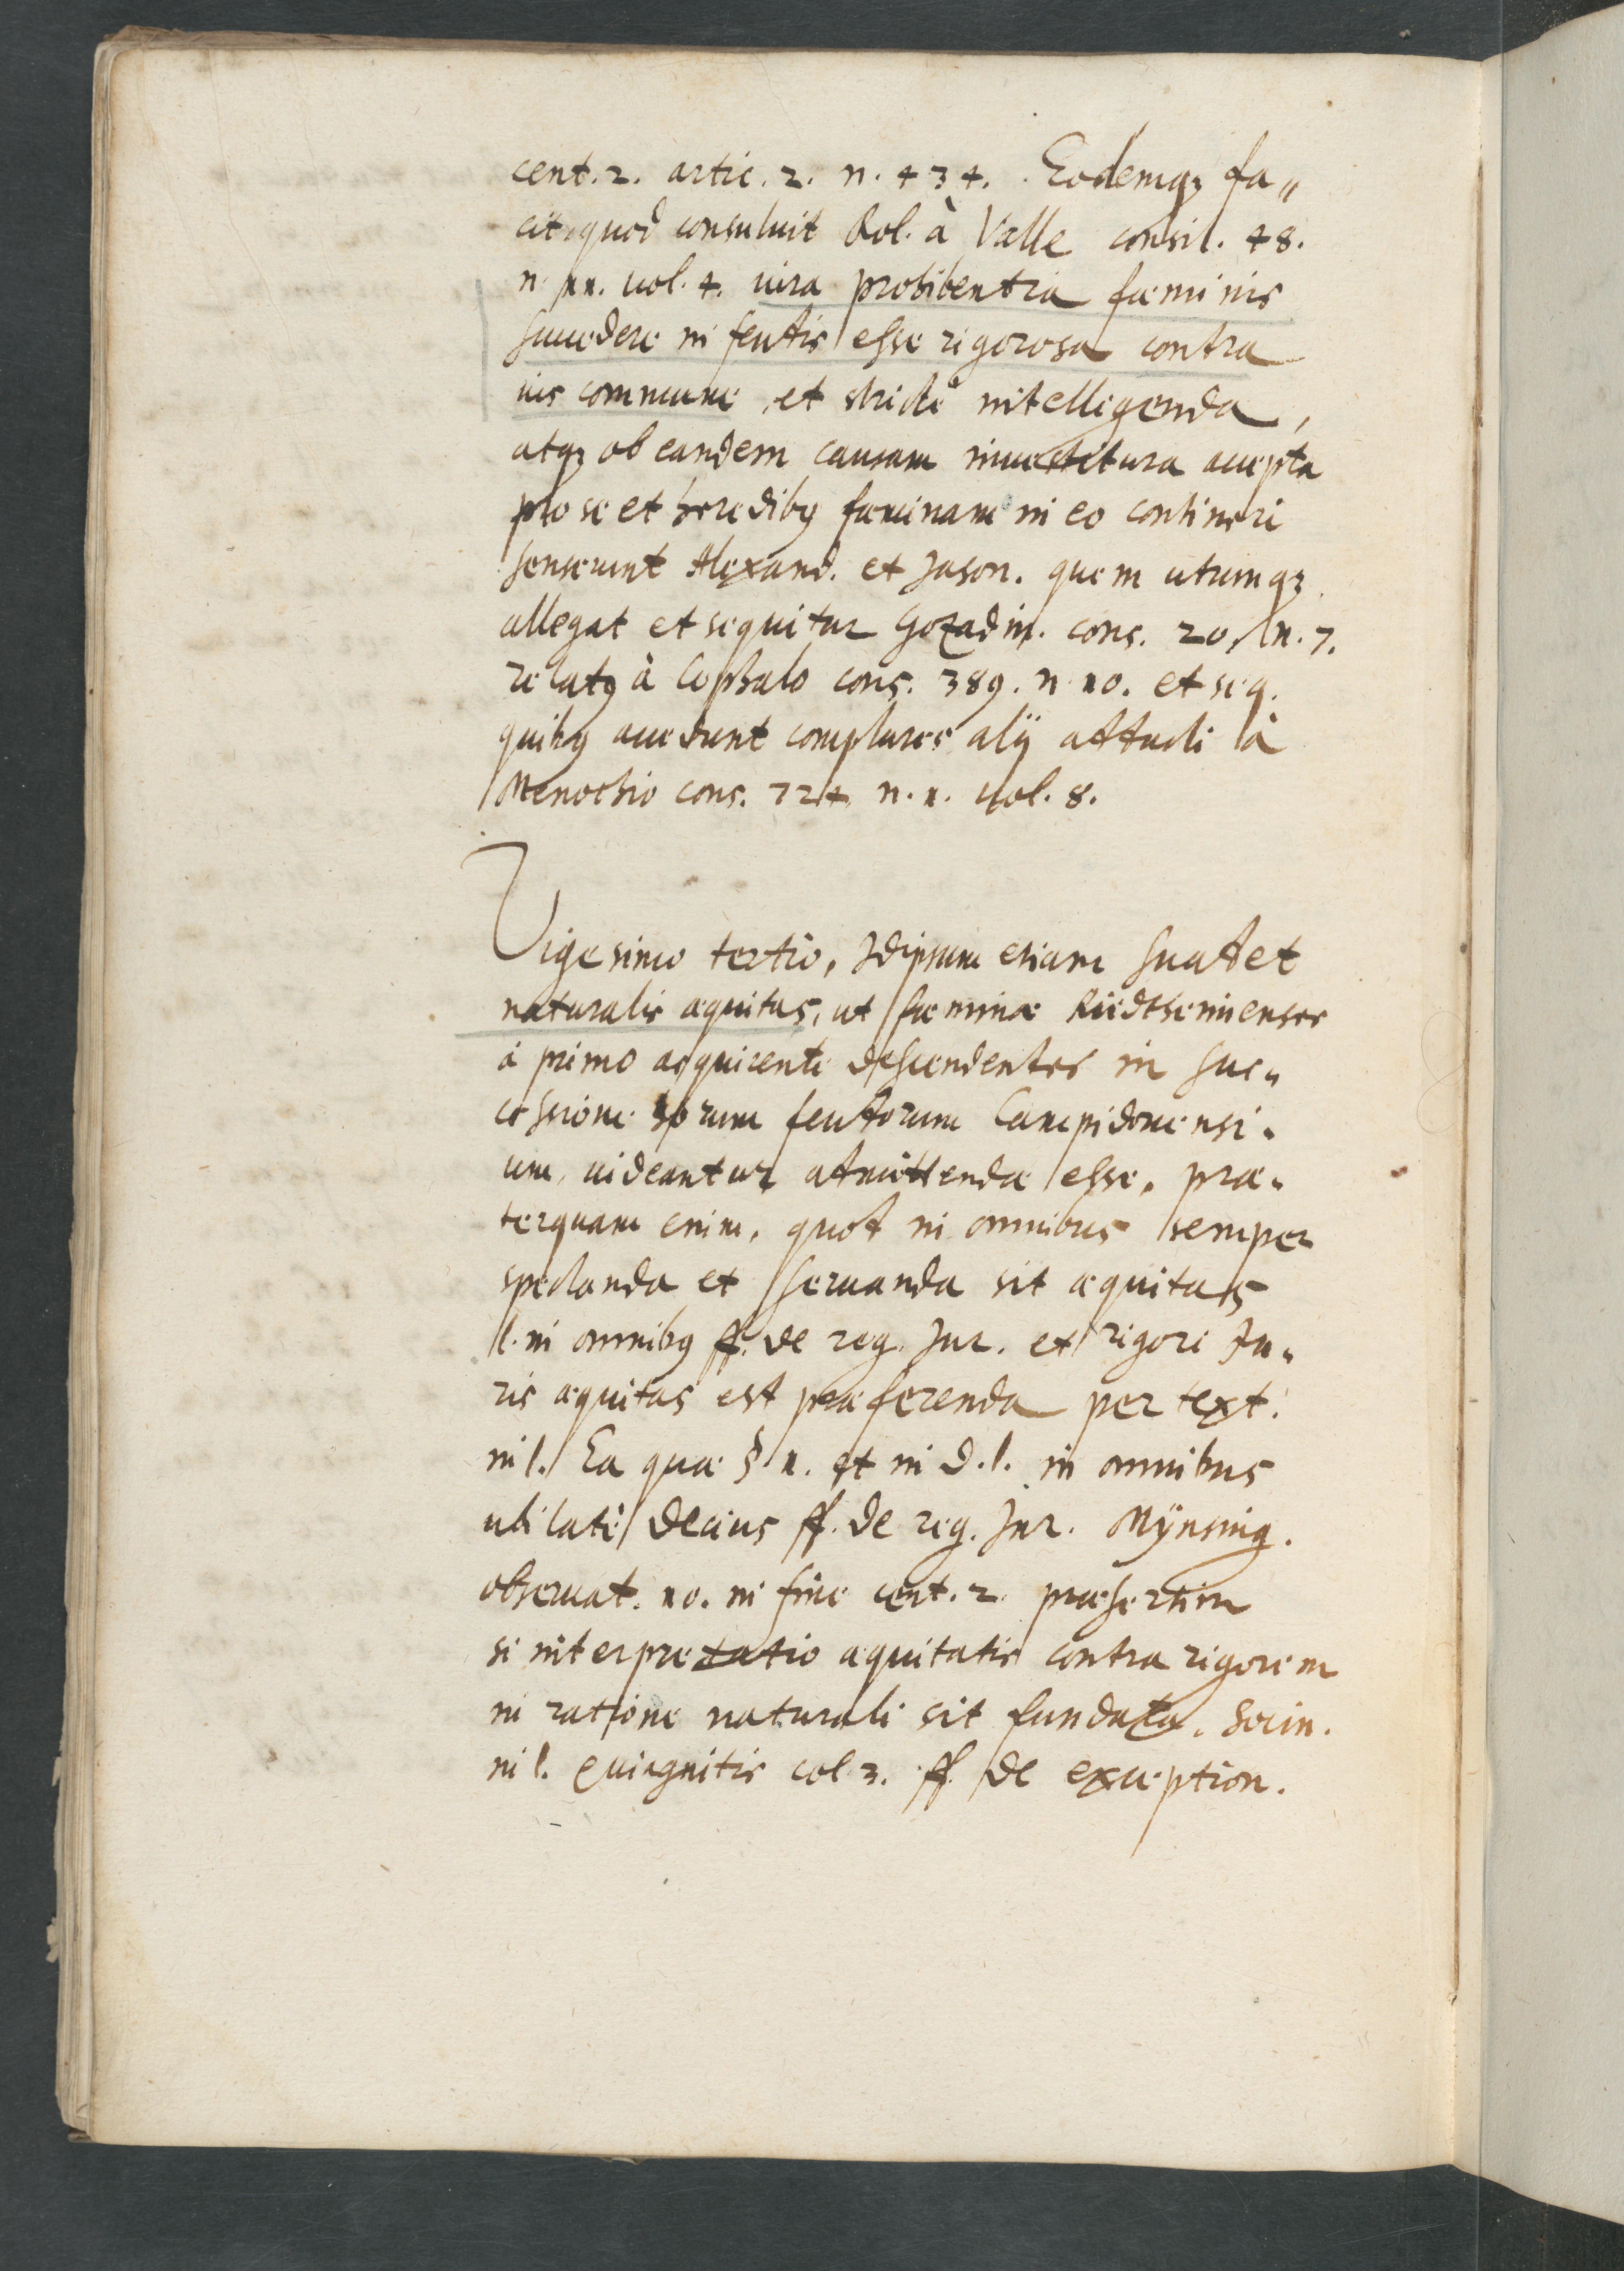 cent. 2. artic. 2. n. 434. Eodemqȝ fa„
cit, quod consuluit Rol. à Valle consil. 48.
n. 11. uol. 4. iura prohibentia fæminis
succedere in feudis esse rigorosa contra
ius commune, et strictè intelligenda,
atqȝ ob eandem causam inuestitura accepta
pro se et heredibꝰ fæminam in eo contineri
senserunt Alexand. et Jason. quem utrumqȝ
allegat et sequitur Gozadin. cons. 20. n. 7.
relatꝰ à Cephalo cons. 389. n. 10. et seq.
quibꝰ accedunt complures alij adducti à
Menochio cons. 724. n. 1. uol. 8.
Vigesimo tertio, Idipsum etiam suadet
naturalis æquitas, ut fæminæ Riedthenienses
à primo acquirente descendentes in suc„
cessione horum feudorum Campidonensi„
um, uideantur admittendæ esse. præ„
terquam enim, quod in omnibus semper
spectanda et seruanda sit æquitas
l. in omnibꝰ ff. de reg. Jur. et rigori Ju„
ris æquitas est præferenda per text.
in l. Ea quæ §. 1. et in d. l. in omnibus
ubi latè Decius ff. de reg. Jur. Mÿnsing.
obseruat. 10. in fine cent. 2. præsertim
si interpretatio æquitatis contra rigorem
in ratione naturali sit fundata. Socin.
in l. quingnitis col. 3. ff. de exception.